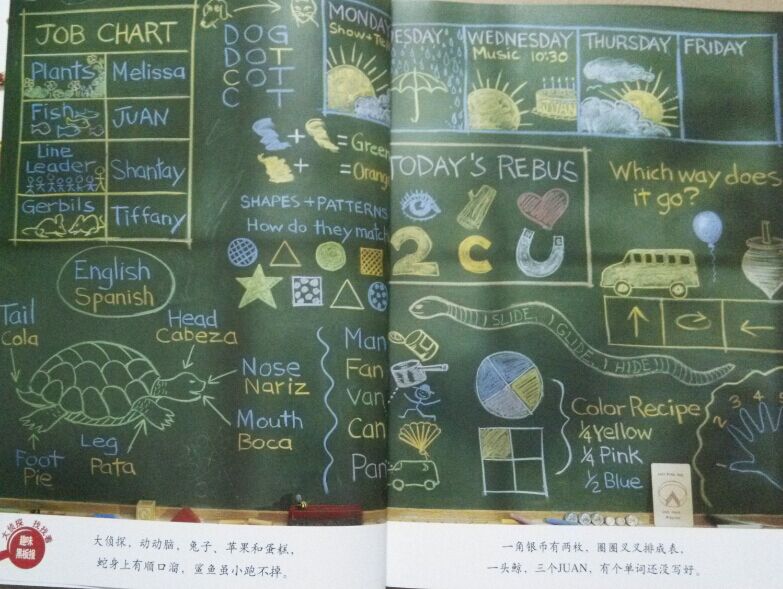 JOB CHART
Plants Melissa
Fish JUAN
Line Leader Shantay
Gerbils Tiffany
DOG
DOT
COT
C T
MONDAY
Show + Tell
ESDAY
WEDNESDAY
Music 10:30
JUAN
THURSDAY
FRIDAY
+ = Green
+ = Orange
SHAPES + PATTERNS
How do they match
TODAY'S REBUS
2 C U
Which way does
it go?
English
Spanish
Tail
Cola
Head
Cabeza
Nose
Nariz
Mouth
Boca
Leg
Pata
Foot
Pie
Man
Fan
Van
Can
Pan
I SLIDE, I GLIDE, I HIDE
Color Recipe
1/4 Yellow
1/4 Pink
1/2 Blue
2 3 4 5
大侦探 找找看
趣味
黑板报
大侦探，动动脑，兔子、苹果和蛋糕，
蛇身上有顺口溜，鲨鱼虽小跑不掉。
一角银币有两枚，圈圈叉叉排成表，
一头鲸，三个JUAN，有个单词还没写好。